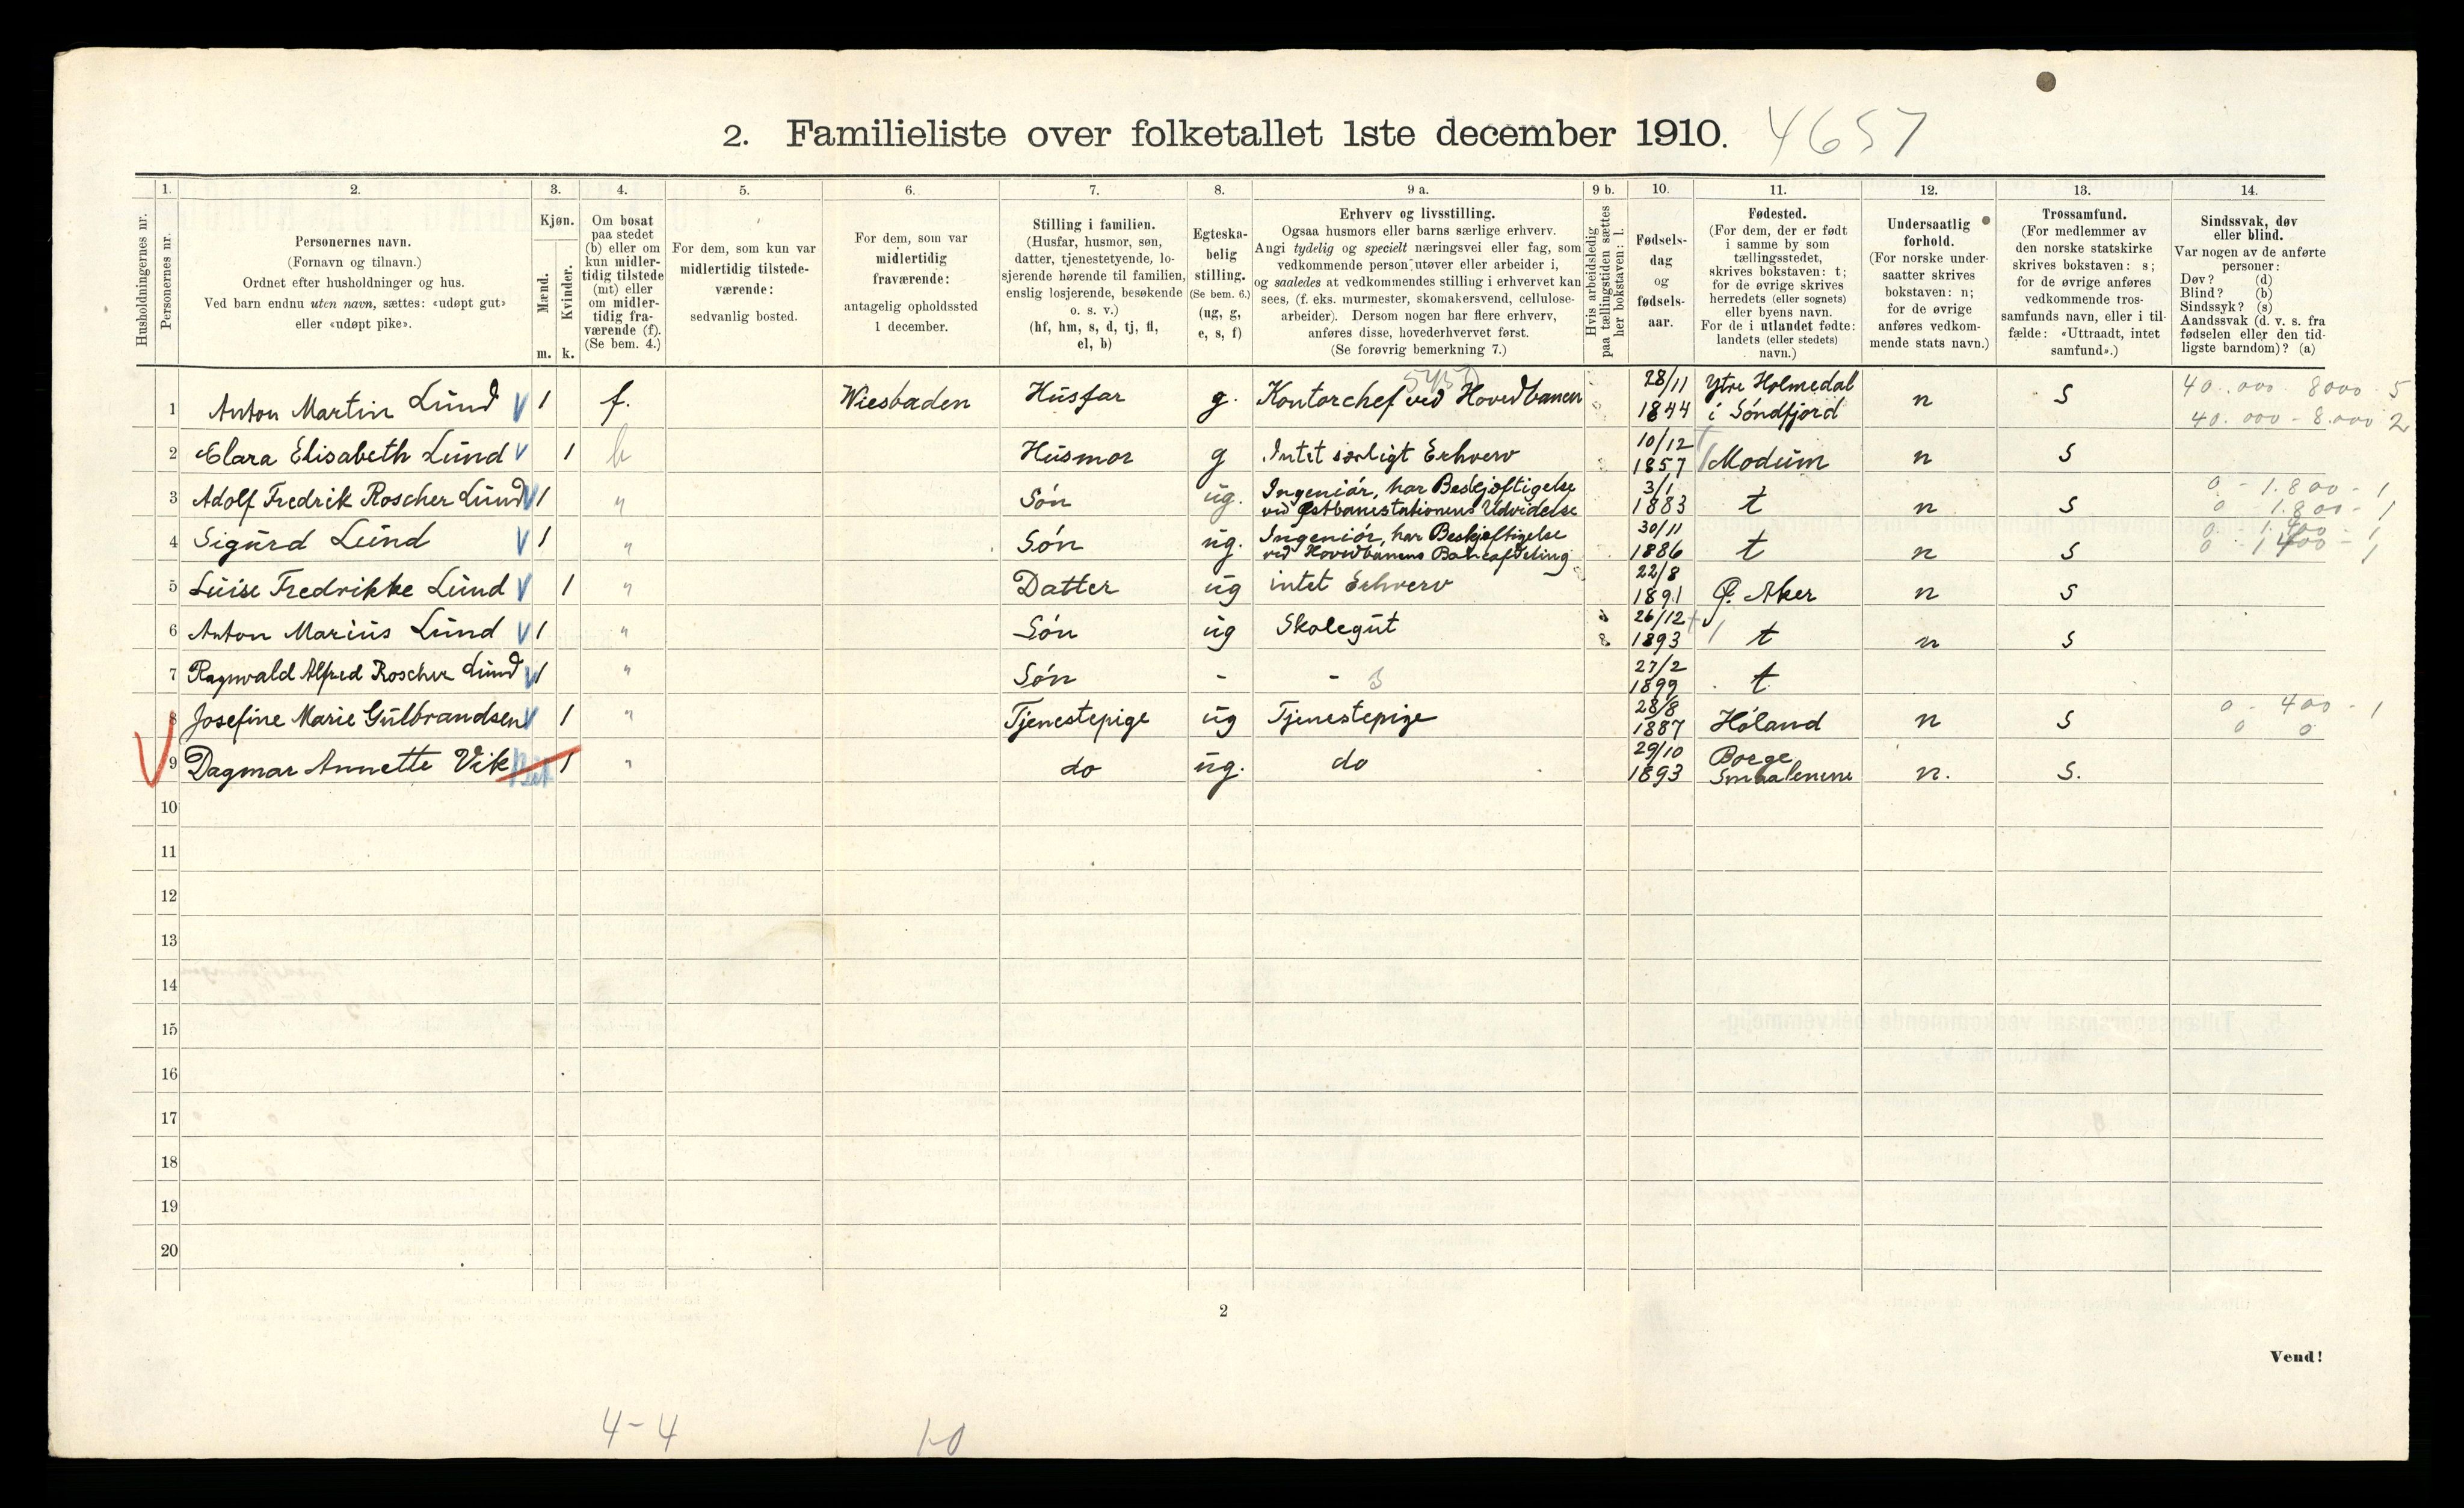 2. Familieliste over folketallet 1ste december 1910. 4657
Husholdningernes nr.
1. Personernes nr.
2. Personernes navn.
(Fornavn og tilnavn.)
Ordnet efter husholdninger og hus.
Ved barn endnu uten navn, sættes: «udøpt gut»
eller «udøpt pike».
3. Kjøn.
Mænd. m.
Kvinder. k.
4. Om bosat
paa stedet
(b) eller om
kun midler-
tidig tilstede
(mt) eller
om midler-
tidig fra-
værende (f).
(Se bem. 4.)
5. For dem, som kun var
midlertidig tilstede-
værende:
sedvanlig bosted.
6. For dem, som var
midlertidig
fraværende:
antagelig opholdssted
1 december.
7. Stilling i familien.
(Husfar, husmor, søn,
datter, tjenestetyende, lo-
sjerende hørende til familien,
enslig losjerende, besøkende
o. s. v.)
(hf, hm, s, d, tj, fl,
el, b)
8. Egteska-
belig
stilling.
(Se bem. 6.)
(ug, g,
e, s, f)
9 a. Erhverv og livsstilling.
Ogsaa husmors eller barns særlige erhverv.
Angi tydelig og specielt næringsvei eller fag, som
vedkommende person utøver eller arbeider i,
og saaledes at vedkommendes stilling i erhvervet kan
sees, (f. eks. murmester, skomakersvend, cellulose-
arbeider). Dersom nogen har flere erhverv,
anføres disse, hovederhvervet først.
(Se forøvrig bemerkning 7.)
9 b. Hvis arbeidsledig
paa tællingstiden sættes
her bokstaven: l.
10. Fødsels-
dag
og
fødsels-
aar.
11. Fødested.
(For dem, der er født
i samme by som
tællingsstedet,
skrives bokstaven: t;
for de øvrige skrives
herredets (eller sognets)
eller byens navn.
For de i utlandet fødte:
landets (eller stedets)
navn.)
12. Undersaatlig
forhold.
(For norske under-
saatter skrives
bokstaven: n;
for de øvrige
anføres vedkom-
mende stats navn.)
13. Trossamfund.
(For medlemmer av
den norske statskirke
skrives bokstaven: s;
for de øvrige anføres
vedkommende tros-
samfunds navn, eller i til-
fælde: «Uttraadt, intet
samfund».)
14. Sindssvak, døv
eller blind.
Var nogen av de anførte
personer:
Døv? (d)
Blind? (b)
Sindssyk? (s)
Aandssvak (d. v. s. fra
fødselen eller den tid-
ligste barndom)? (a)
1 Anton Martin Lund V 1 f. Wiesbaden Husfar g. Kontorchef ved Hovedbanen 28/11 1844 Ytre Holmedal i Söndfjord n S 40.000 8000 5
40.000 - 8.000 2
2 Clara Elisabeth Lund V 1 b Husmor g Intet særligt Erhverv 10/12 1857 Modum n S
3 Adolf Fredrik Roscher Lund V 1 " Sön ug. Ingeniör, har Beskjæftigelse ved Østbanestationens Udvidelse 3/1 1883 t n S 0 - 1.800 - 1
0 - 1.800 - 1
4 Sigurd Lund V 1 " Sön ug. Ingeniör, har Beskjæftigelse ved Hovedbanens Baneafdeling 30/11 1886 t n S 0 - 1.400 - 1
0 - 1400 - 1
5 Luise Fredrikke Lund V 1 " Datter ug intet Erhverv 22/8 1891 Ø. Aker n S
6 Anton Marius Lund V 1 " Sön ug Skolegut 26/12 1893 t n S
7 Ragnvald Alfred Roscher Lund V 1 " Sön - - 3 27/2 1899 t
8 Josefine Marie Gulbrandsen V 1 " Tjenestepige ug Tjenestepige 28/8 1887 Höland n S 0 - 400 - 1
0 0
9 Dagmar Annette Vik 1 " do ug. do 29/10 1893 Borge Smaalenene n. S.
10
11
12
13
14
15
16
17
18
19
20
2
Vend!
4-4 1-0